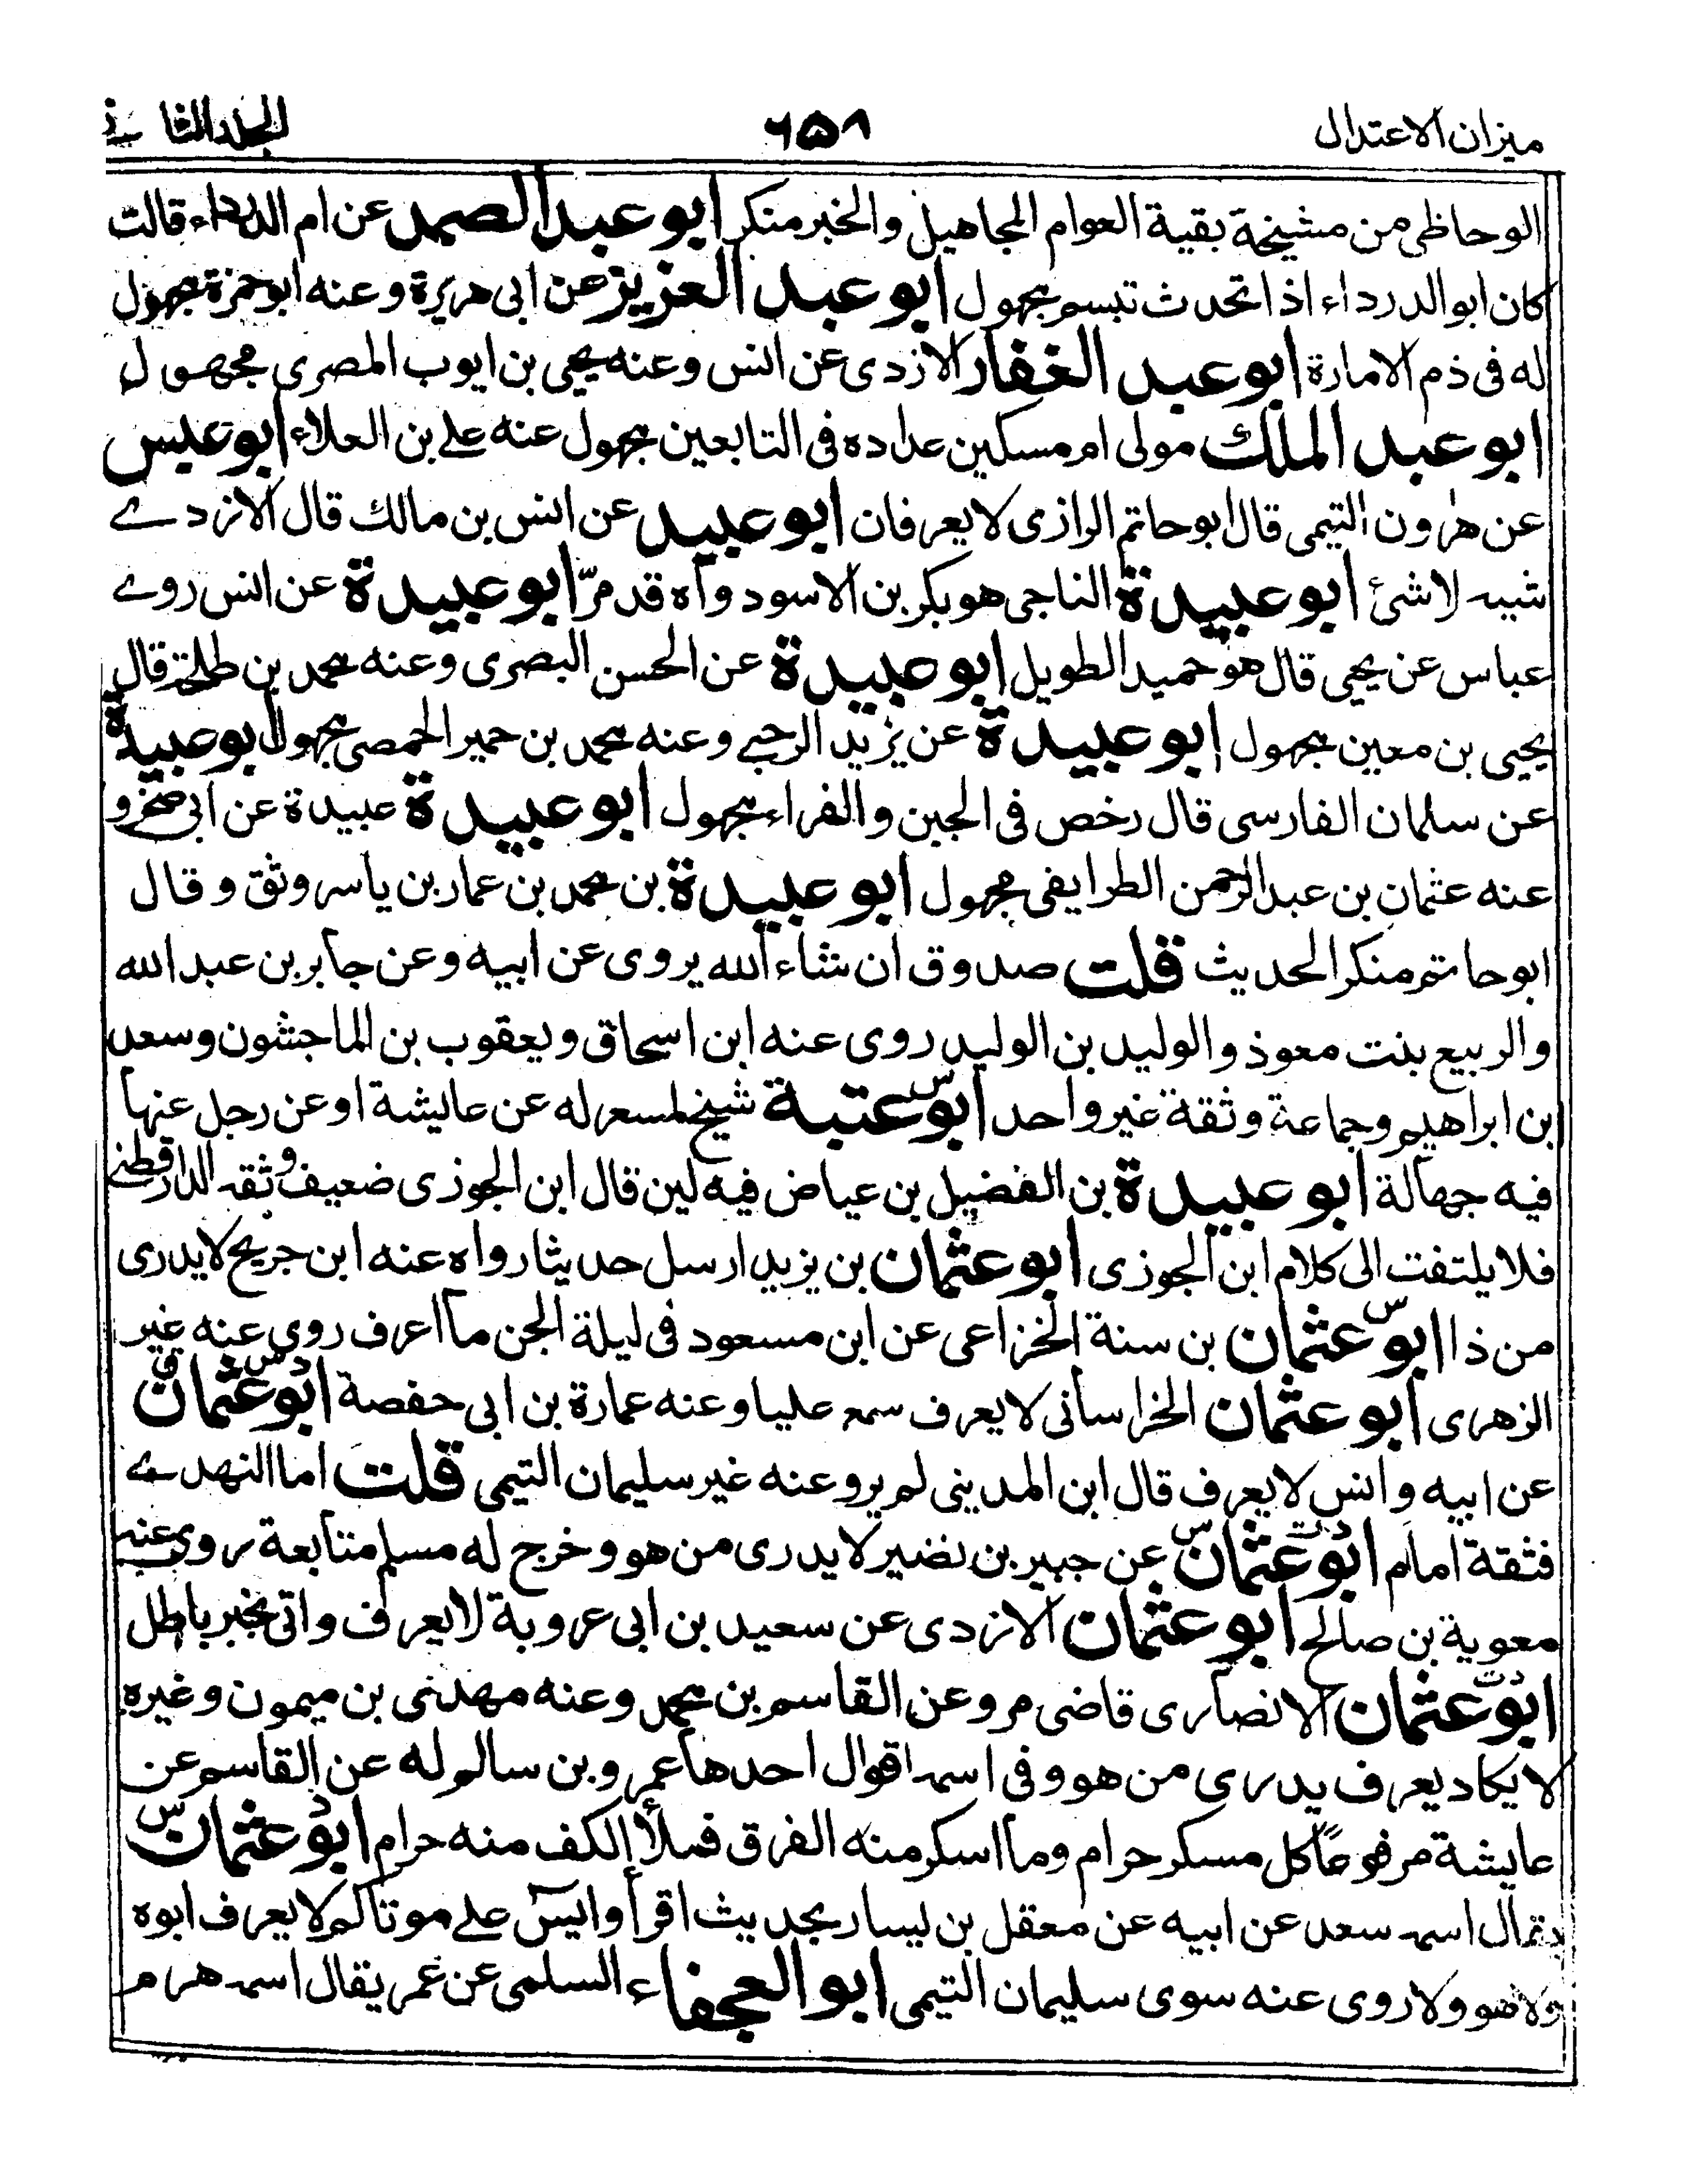 ميزان الاعتدال
٦٥٨
الجلد الثانى
الوحاظى من مشيخة بقية العوام المجاهيل والخبر منكر ابو عبد الصمد عن ام الدرداء قالت
كان ابو الدرداء اذا تحدث تبسم مجهول ابو عبد العزيز عن ابى هريرة وعنه ابو حمزة مجهول
له فى ذم الامارة ابو عبد الغفار الازدى عن انس وعنه يحيى بن ايوب المصرى مجهول
ابو عبد الملك مولى ام مسكين عداده فى التابعين مجهول عنه على بن العلاء ابو عبس
عن هرون التيمى قال ابو حاتم الرازى لا يعرفان ابو عبيد عن انس بن مالك قال الازدے
شبه لا شئ ابو عبيدة الناجى هو بكر بن الاسود واه قد مرّ ابو عبيدة عن انس روے
عباس عن يحيى قال هو حميد الطويل ابو عبيدة عن الحسن البصرى وعنه محمد بن طلحة قال
يحيى بن معين مجهول ابو عبيدة عن يزيد الرحبے وعنه محمد بن حمير الحمصى مجهول ابو عبيدة
عن سلمان الفارسى قال رخص فى الجبن والفراء مجهول ابو عبيدة عبيدة عن ابى صخر و
عنه عثمان بن عبد الرحمن الطرايفى مجهول ابو عبيدة بن محمد بن عمار بن ياسر وثق وقال
ابو حاتم منكر الحديث قلت صدوق ان شاء الله يروى عن ابيه وعن جابر بن عبد الله
والربيع بنت معوذ والوليد بن الوليد روى عنه ابن اسحاق ويعقوب بن الماجشون وسعد
بن ابراهيم وجماعة وثقة غير واحد ابو عتبة س شيخ لمسعر له عن عايشة او عن رجل عنها
فيه جهالة ابو عبيدة بن الفضيل بن عياض فيه لين قال ابن الجوزى ضعيف وثقه الدارقطنے
فلا يلتفت الى كلام ابن الجوزى ابو عثمان بن يزيد ارسل حديثا رواه عنه ابن جريج لا يدرى
من ذا ابو عثمان س بن سنة الخزاعى عن ابن مسعود فى ليلة الجن ما اعرف روى عنه غير
الزهرى ابو عثمان الخراسانى لا يعرف سمع عليا وعنه عمارة بن ابى حفصة ابو عثمان د س ق
عن ابيه وانس لا يعرف قال ابن المدينى لم يرو عنه غير سليمان التيمى قلت اما النهدے
فثقة امام ابو عثمان د ت س عن جبير بن نضير لا يدرى من هو وخرج له مسلم متابعة روى عنه
معوية بن صالح ابو عثمان الازدى عن سعيد بن ابى عروبة لا يعرف واتى بخبر باطل
ابو عثمان د ت الانصارى قاضى مرو عن القاسم بن محمد وعنه مهدى بن ميمون وغيره
لا يكاد يعرف يدرى من هو وفى اسمه اقوال احدها عمرو بن سالم له عن القاسم عن
عايشة مرفوعًا كل مسكر حرام وما اسكر منه الفرق فملأ الكف منه حرام ابو عثمان د س
يقال اسمه سعد عن ابيه عن معقل بن يسار بحديث اقرأوا يس على موتاكم لا يعرف ابوه
ولا هو ولا روى عنه سوى سليمان التيمى ابو العجفاء السلمى عن عمر يقال اسمه هرم